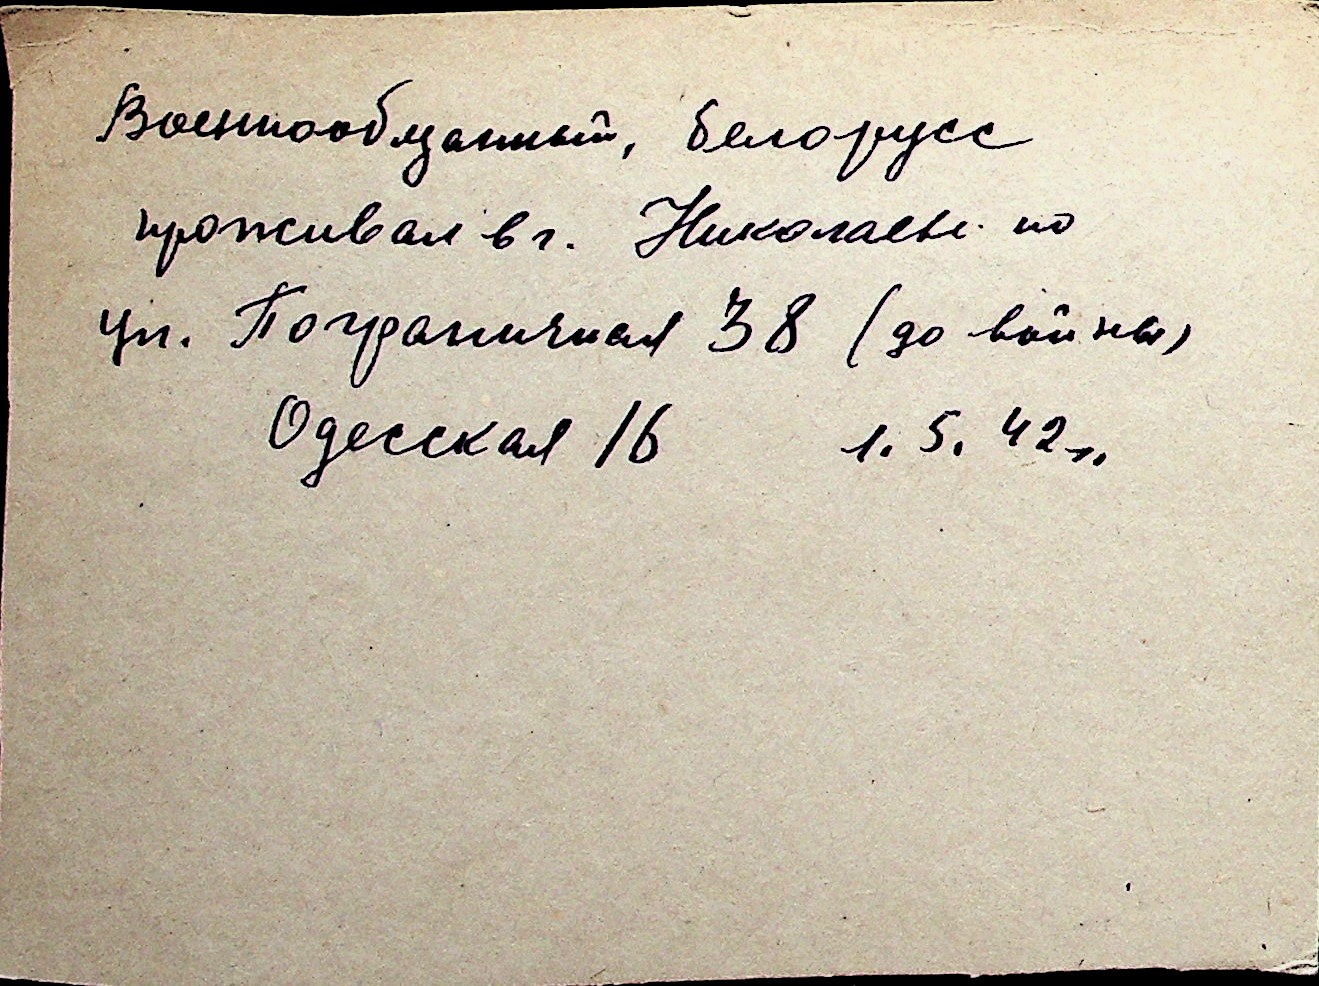 Военнообязанный, белорусс
проживал в г. Николаеве по
ул. Пограничная 38 (до войны)
Одесская 16 1. 5. 42 г.